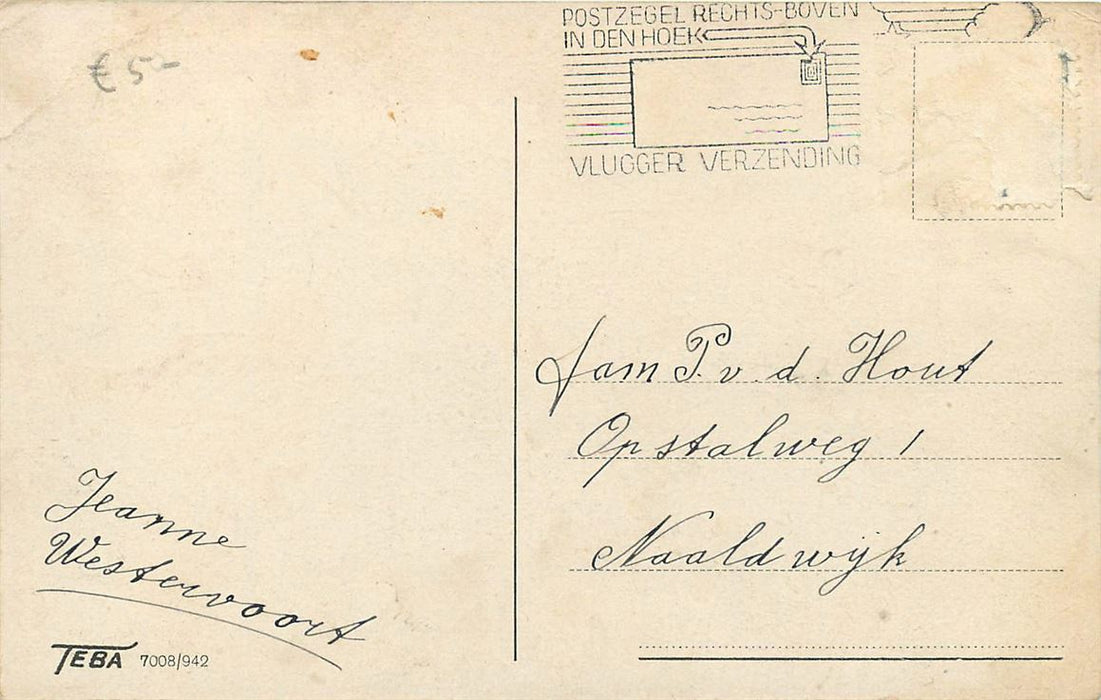 € 5-
POSTZEGEL RECHTS-BOVEN
IN DEN HOEK
VLUGGER VERZENDING
fam P. v. d. Hout
Opstalweg 1
Naaldwijk
Jeanne
Westervoort
TEBA 7008/942